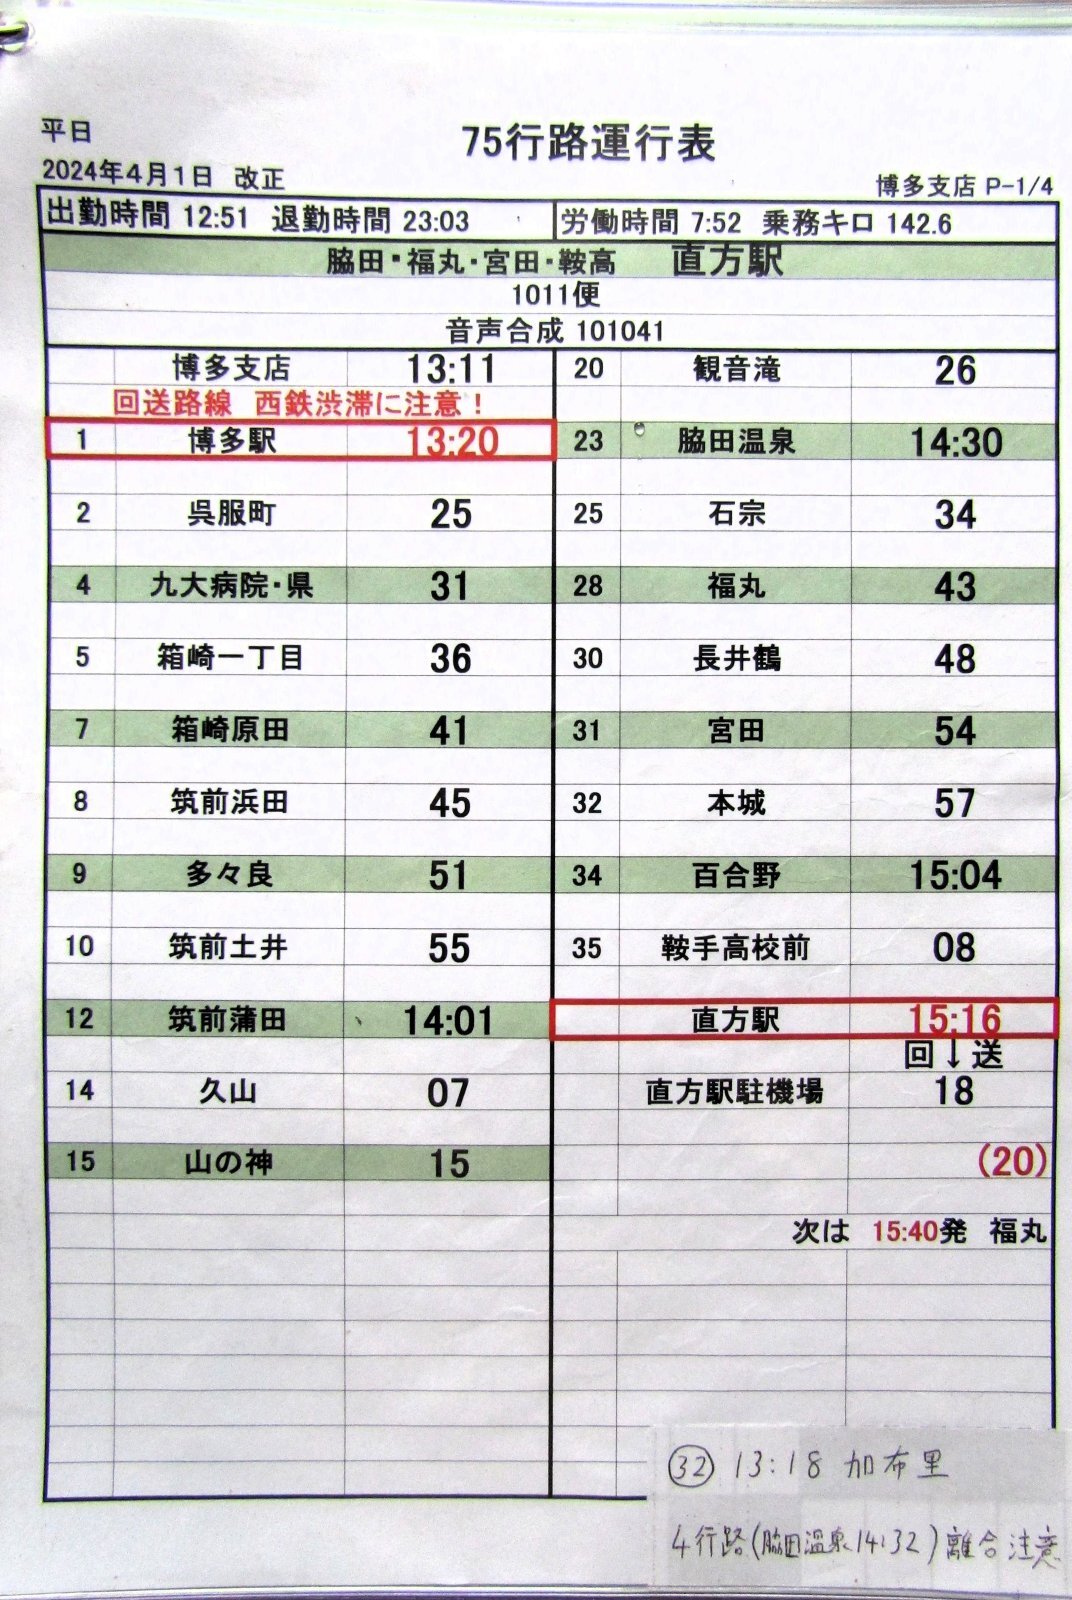 平日
75行路運行表
2024年4月1日 改正
博多支店 P-1/4
出勤時間 12:51 退勤時間 23:03
労働時間 7:52 乗務キロ 142.6
脇田・福丸・宮田・鞍高 直方駅
1011便
音声合成 101041
博多支店 13:11
回送路線 西鉄渋滞に注意！
1 博多駅 13:20
2 呉服町 25
4 九大病院・県 31
5 箱崎一丁目 36
7 箱崎原田 41
8 筑前浜田 45
9 多々良 51
10 筑前土井 55
12 筑前蒲田 14:01
14 久山 07
15 山の神 15
20 観音滝 26
23 脇田温泉 14:30
25 石宗 34
28 福丸 43
30 長井鶴 48
31 宮田 54
32 本城 57
34 百合野 15:04
35 鞍手高校前 08
直方駅 15:16
回↓送
直方駅駐機場 18
(20)
次は 15:40発 福丸
㉜ 13:18 加布里
4行路(脇田温泉14:32)離合注意